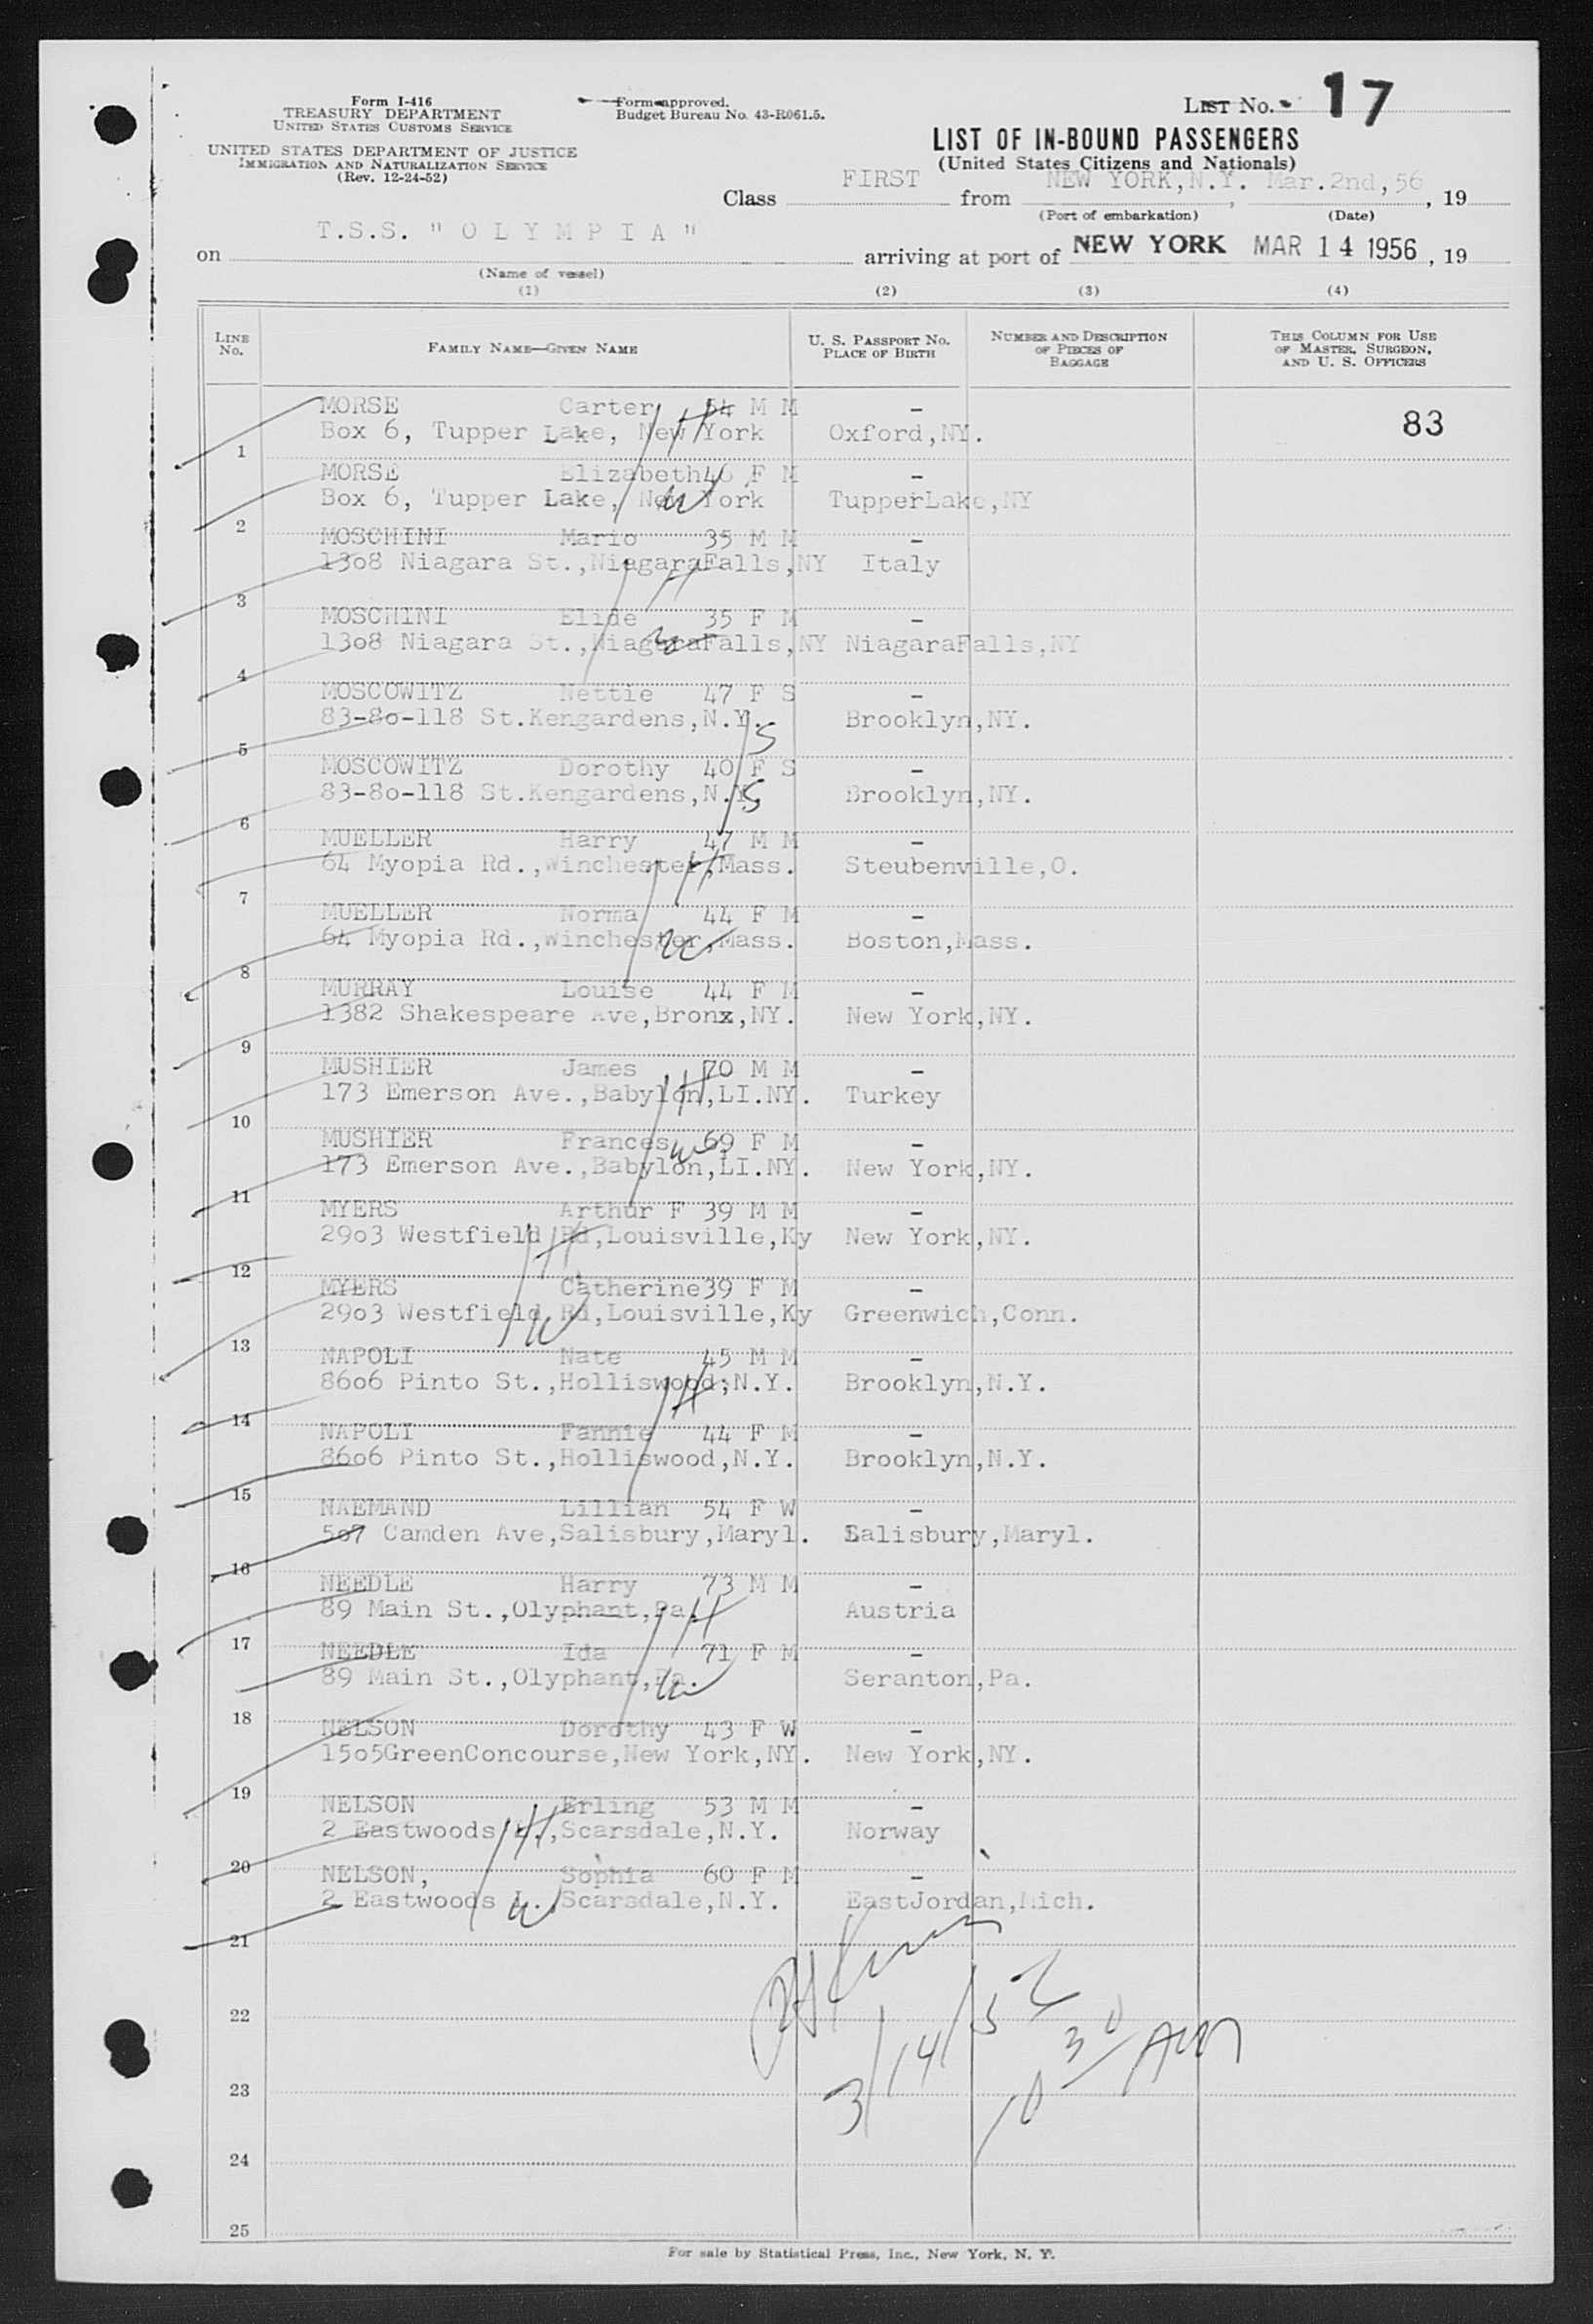 Form I-416
TREASURY DEPARTMENT
UNITED STATES CUSTOMS SERVICE
UNITED STATES DEPARTMENT OF JUSTICE
IMMIGRATION AND NATURALIZATION SERVICE
(Rev. 12-24-52)
Form approved.
Budget Bureau No. 43-R061.5.
LIST No. 17
LIST OF IN-BOUND PASSENGERS
(United States Citizens and Nationals)
Class FIRST from NEW YORK,N.Y. , Mar.2nd,56 , 19
(Port of embarkation) (Date)
on T.S.S. "OLYMPIA" arriving at port of NEW YORK MAR 14 1956 , 19
(Name of vessel)
(1) (2) (3) (4)
LINE No. FAMILY NAME—GIVEN NAME U. S. PASSPORT No. PLACE OF BIRTH NUMBER AND DESCRIPTION OF PIECES OF BAGGAGE THIS COLUMN FOR USE OF MASTER, SURGEON, AND U. S. OFFICERS
MORSE Carter 54 M M - 83
1 Box 6, Tupper Lake, New York Oxford,NY. H
MORSE Elizabeth46 F M -
2 Box 6, Tupper Lake, New York TupperLake,NY W
MOSCHINI Mario 35 M M -
3 1308 Niagara St.,NiagaraFalls,NY Italy H
MOSCHINI Elide 35 F M -
4 1308 Niagara St.,NiagaraFalls,NY NiagaraFalls,NY W
MOSCOWITZ Nettie 47 F S -
5 83-80-118 St.Kengardens,N.Y. Brooklyn,NY. S
MOSCOWITZ Dorothy 40 F S -
6 83-80-118 St.Kengardens,N.Y. Brooklyn,NY. S
MUELLER Harry 47 M M -
7 64 Myopia Rd.,Winchester,Mass. Steubenville,O. H
MUELLER Norma 44 F M -
8 64 Myopia Rd.,Winchester,Mass. Boston,Mass. W
MURRAY Louise 44 F M -
9 1382 Shakespeare Ave,Bronx,NY. New York,NY.
MUSHIER James 70 M M -
10 173 Emerson Ave.,Babylon,LI.NY. Turkey H
MUSHIER Frances 69 F M -
11 173 Emerson Ave.,Babylon,LI.NY. New York,NY. W
MYERS Arthur F 39 M M -
12 2903 Westfield Rd,Louisville,Ky New York,NY. H
MYERS Catherine39 F M -
13 2903 Westfield Rd,Louisville,Ky Greenwich,Conn. W
NAPOLI Nate 45 M M -
14 8606 Pinto St.,Holliswood;N.Y. Brooklyn,N.Y. H
NAPOLI Fannie 44 F M -
15 8606 Pinto St.,Holliswood,N.Y. Brooklyn,N.Y.
NAEMAND Lillian 54 F W -
16 507 Camden Ave,Salisbury,Maryl. Salisbury,Maryl.
NEEDLE Harry 73 M M -
17 89 Main St.,Olyphant,Pa. Austria H
NEEDLE Ida 71 F M -
18 89 Main St.,Olyphant,Pa. Seranton,Pa. W
NELSON Dorothy 43 F W -
19 1505GreenConcourse,New York,NY. New York,NY.
NELSON Erling 53 M M -
20 2 Eastwoods L.,Scarsdale,N.Y. Norway H
NELSON, Sophia 60 F M -
21 2 Eastwoods L.,Scarsdale,N.Y. EastJordan,Mich. W
22
3/14/52
10 30 AM
23
24
25
For sale by Statistical Press, Inc., New York, N. Y.